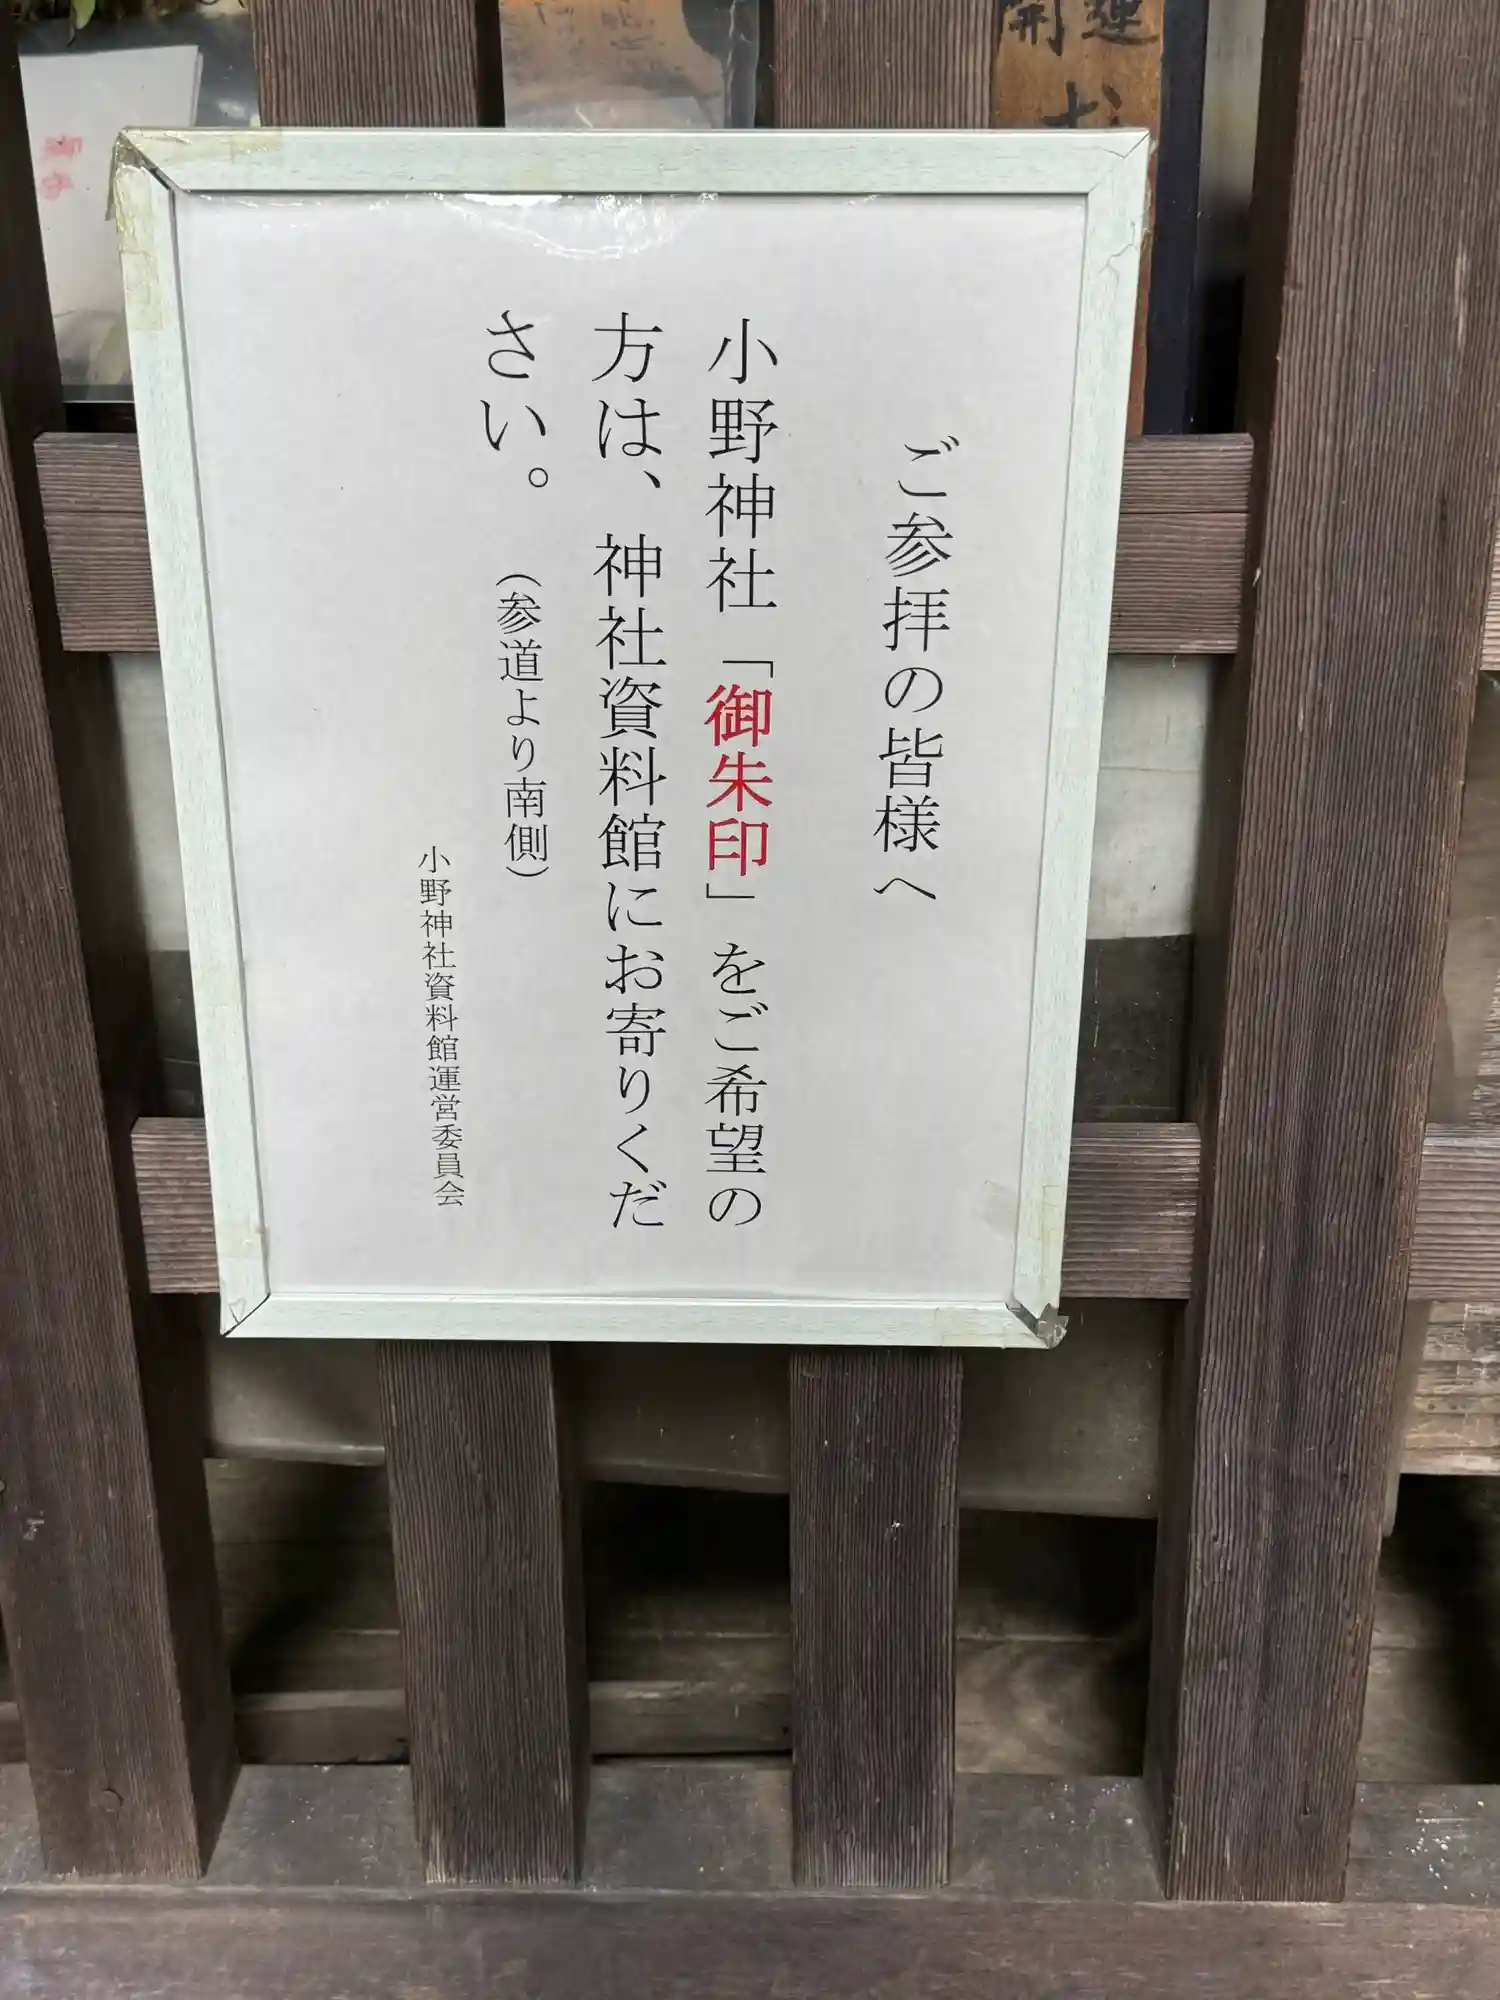 ご参拝の皆様へ
小野神社「御朱印」をご希望の
方は、神社資料館にお寄りくだ
さい。(参道より南側)
小野神社資料館運営委員会
開運